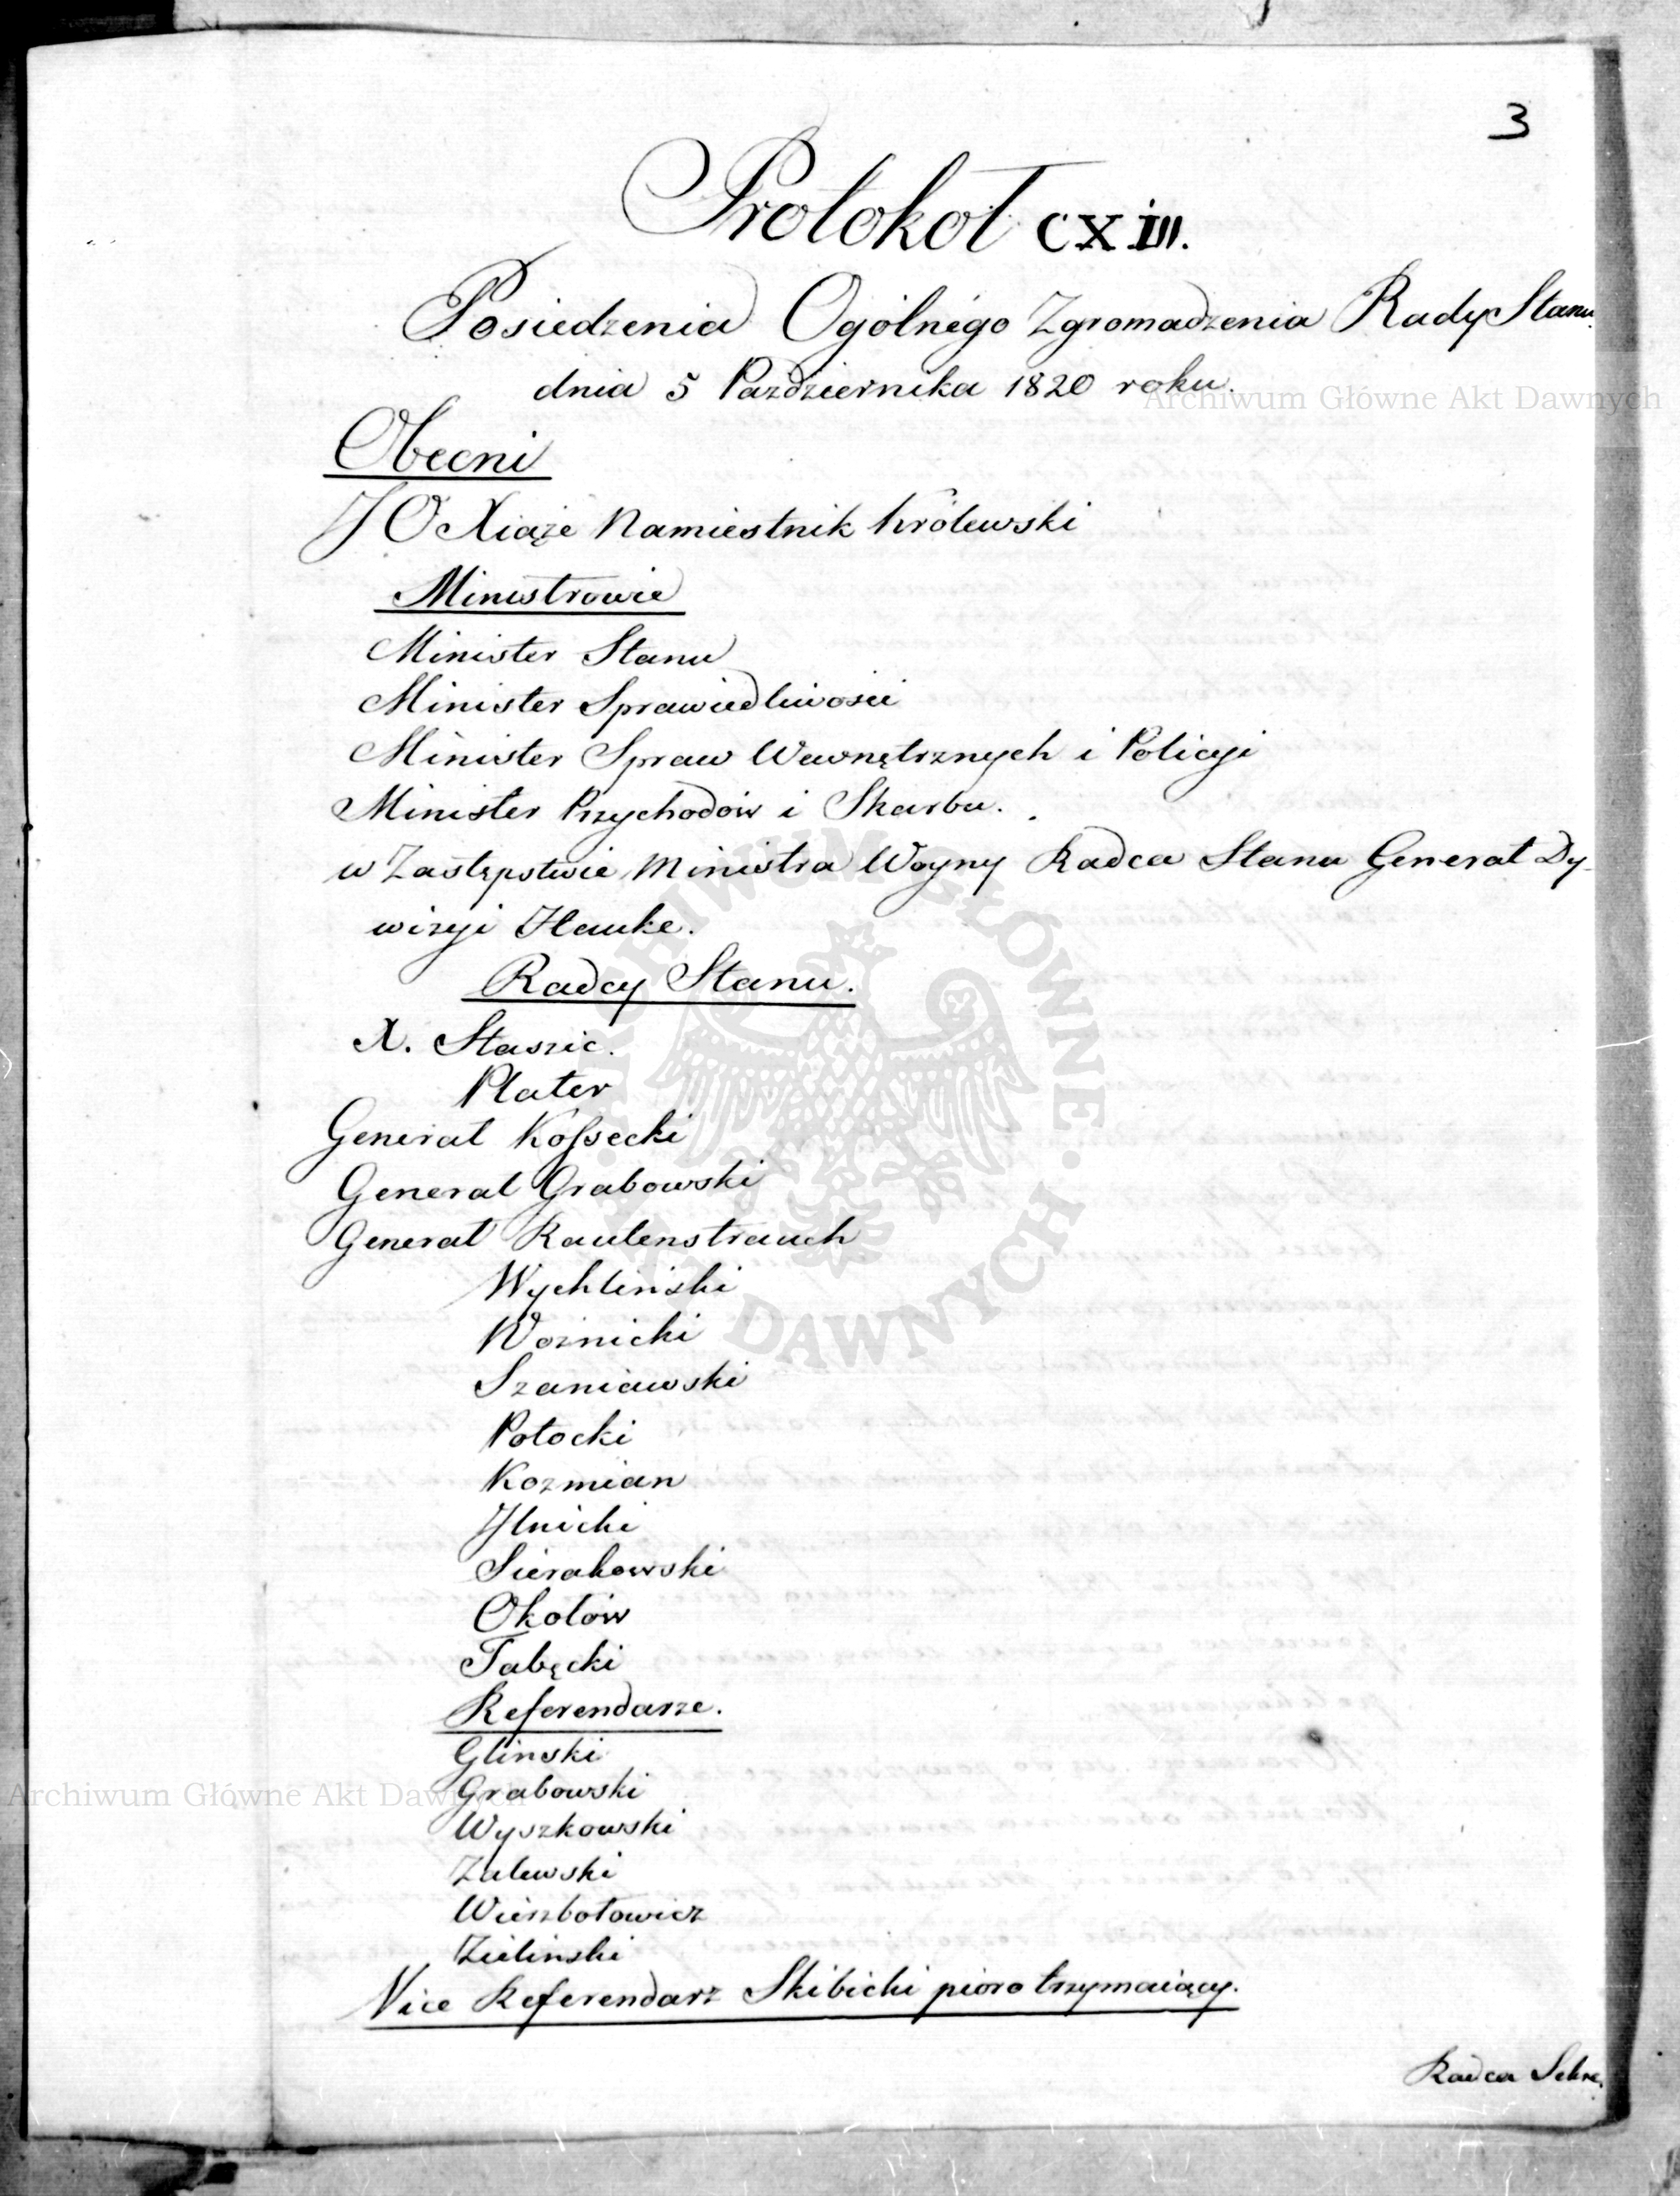 3
Protokół CXIII.
Posiedzenia Ogólnego Zgromadzenia Rady Stanu
dnia 5 Października 1820 roku.
Archiwum Główne Akt Dawnych
Obecni
JO Xiąże Namiestnik Królewski
Ministrowie
Minister Stanu
Minister Sprawiedliwości
Minister Spraw Wewnętrznych i Policyi
Minister Przychodów i Skarbu.
w Zastępstwie Ministra Woyny Radca Stanu Generał Dy-
wizyi Hauke.
Radcy Stanu.
X. Staszic.
Plater
Generał Kossecki
Generał Grabowski
Generał Rautenstrauch
Wychliński
Woźnicki
Szaniawski
Potocki
Kozmian
Ilnicki
Sierakowski
Okołów
Tabęcki
Referendarze.
Gliński
Grabowski
Wyszkowski
Zalewski
Wierzbołowicz
Zieliński
Vice Referendarz Skibicki pióro trzymaiący.
Radca Sekre.
ARCHIWUM GŁÓWNE AKT DAWNYCH
Archiwum Główne Akt Dawnych